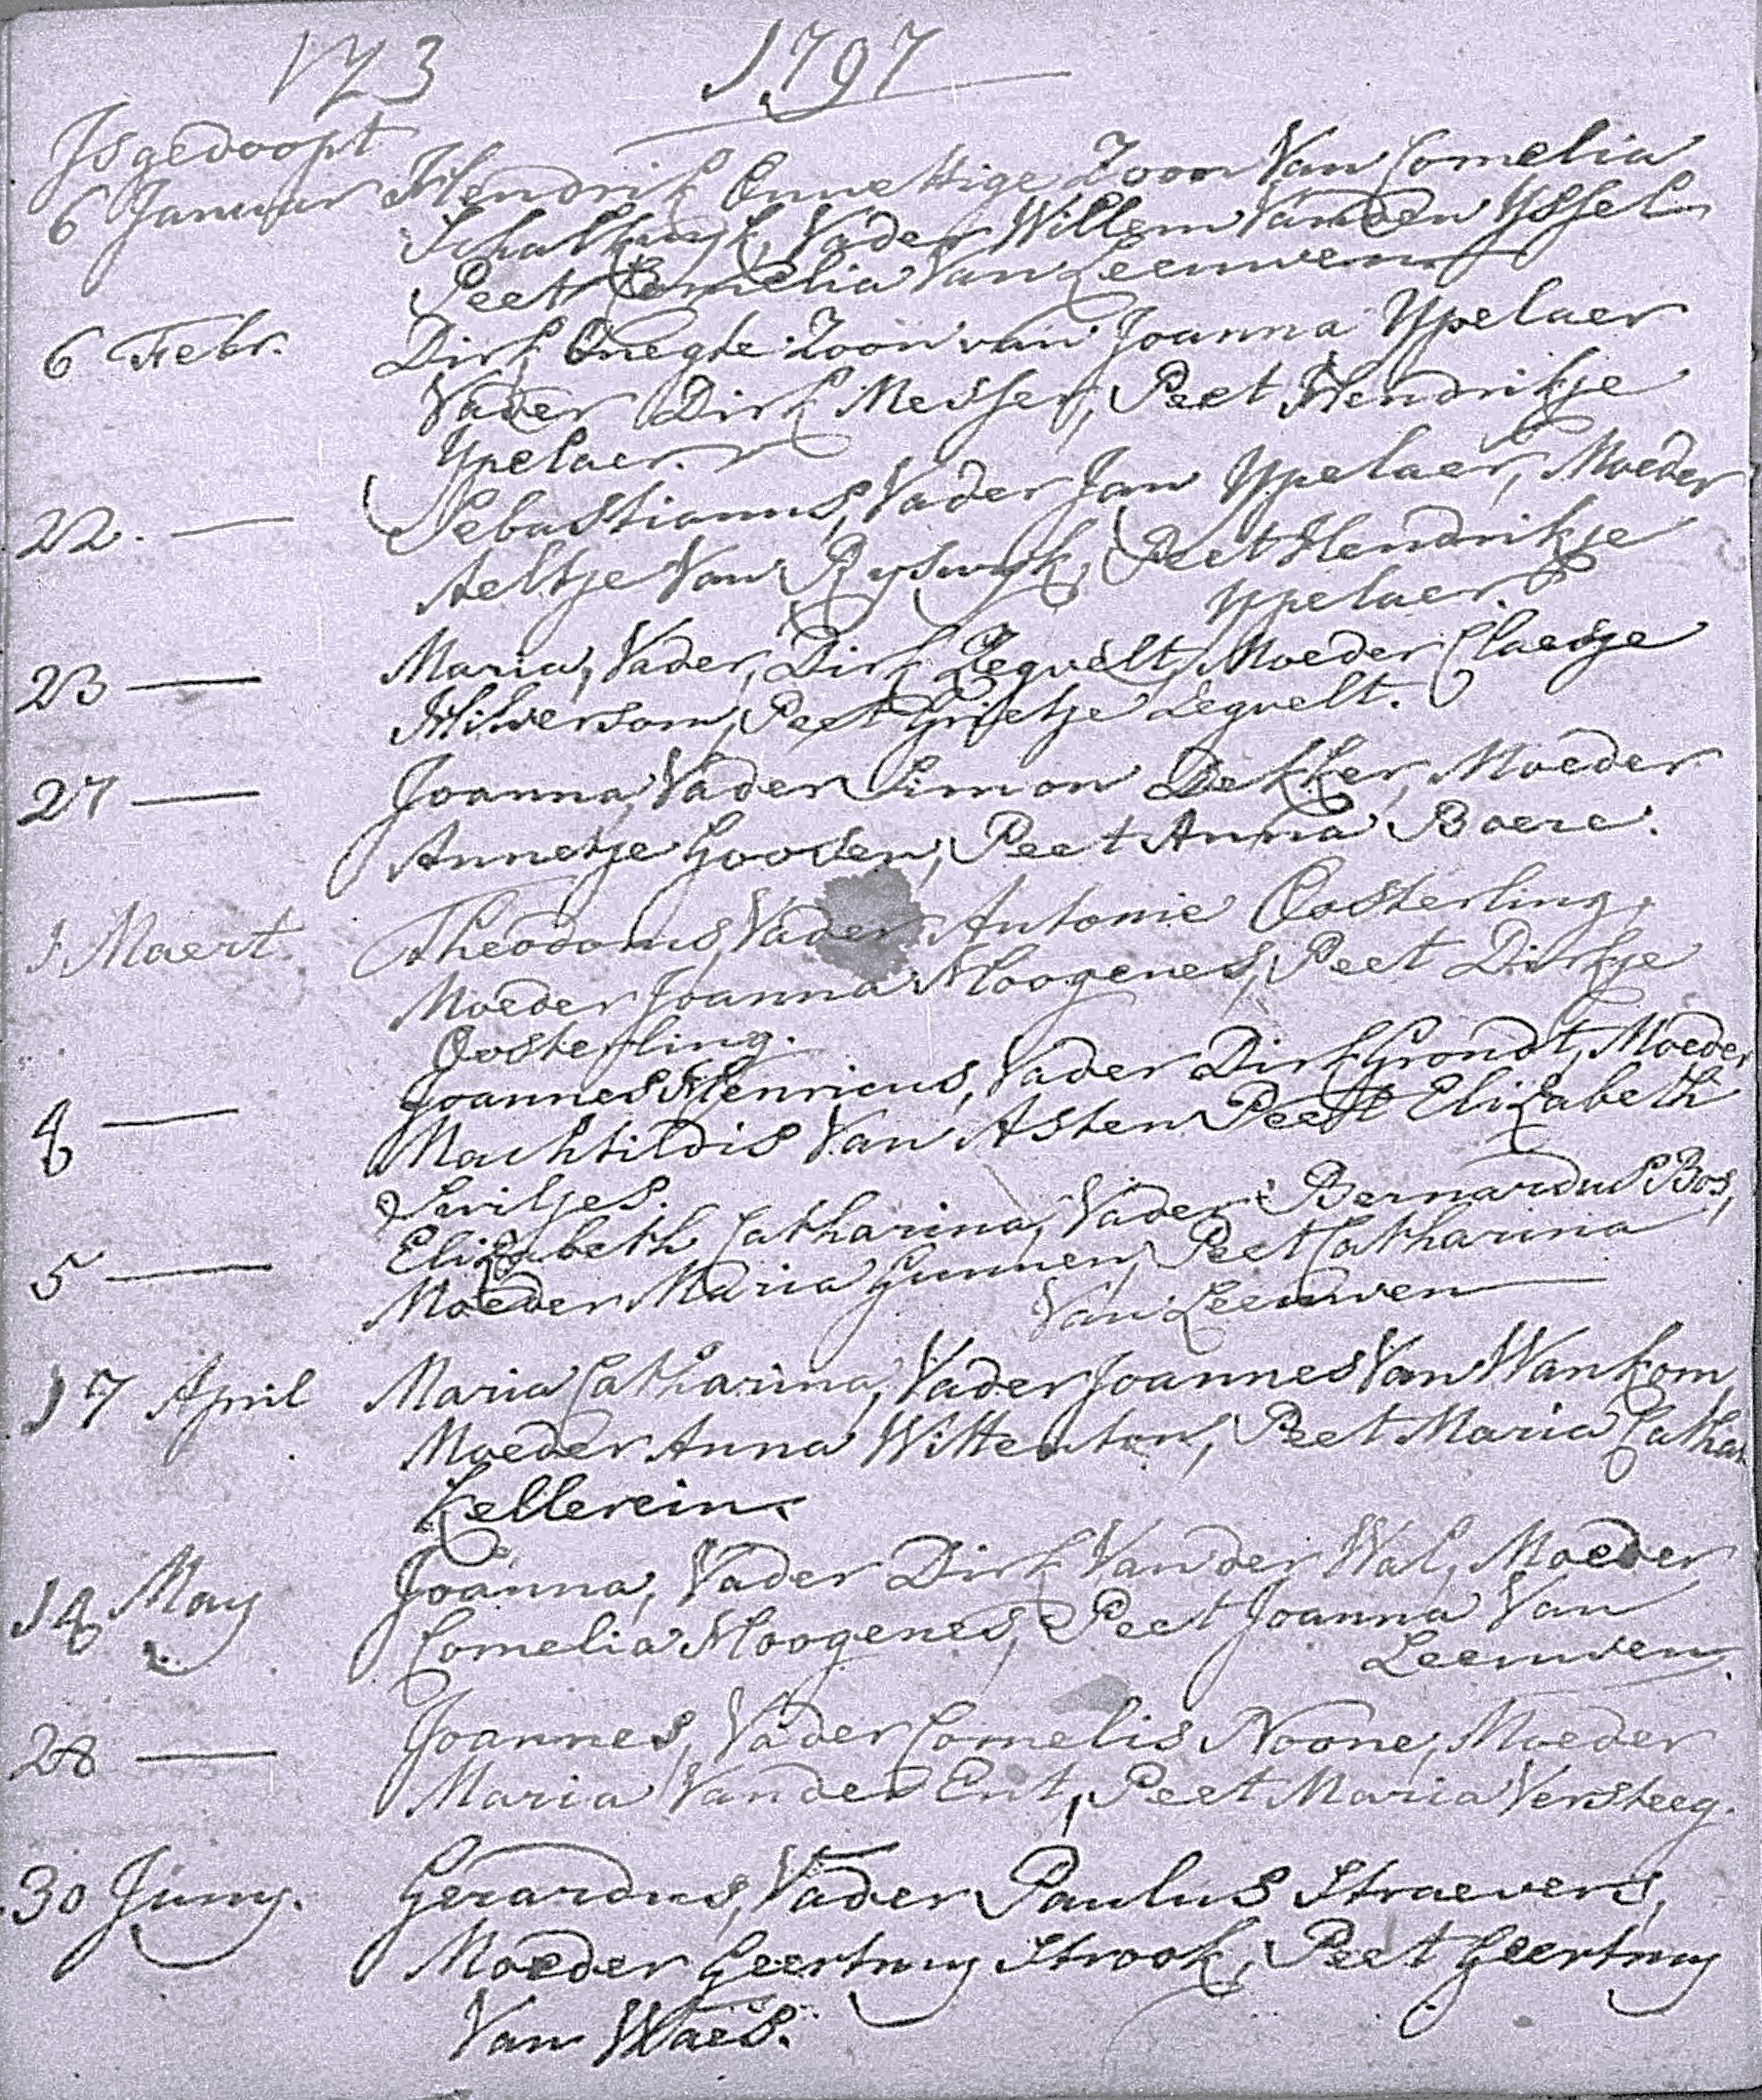 173 1797
Js gedoopt
6 Januar Hendrik Onnettige Zoon Van Cornelia
Schalkwyk, Vader Willem Van den Yssel
Peet Cornelia Van Leeuwen
6 Febr. Dirk Onegte Zoon van Joanna Ypelaer
Vader Dirk Messer, Peet Hendrikje
Ypelaer.
22. — Sebastianus, Vader Jan Ypelaer, Moeder
Aeltje Van Ryswyk, Peet Hendrikje
Ypelaer
23 — Maria, Vader, Dirk Zegvelt, Moeder Claesje
Hilversom, Peet Grietje Zegvelt.
27 — Joanna, Vader Simon Dekker, Moeder
Annetje Goosen, Peet Anna Boere.
1 Maert. Theodorus, Vader Antonie Oosterling,
Moeder Joanna Hoogenes, Peet Dirkje
Oosterling.
4 — Joannes Henricus, Vader Dirk Grondt, Moeder
Machtildis Van Asten Peet Elizabeth
5 — Elizabeth Catharina, Vader Bernardus Bos,
Moeder Maria Gunnen, Peet Catharina
Van Leeuwen
17 April Maria Catharina, Vader Joannes Van Wankom,
Moeder Anna Wittenton, Peet Maria Catha.
Kellerein.
14 May Joanna, Vader Dirk Van der Wal, Moeder
Cornelia Hoogenes, Peet Joanna Van
Leeuwen.
28 — Joannes, Vader Cornelis Noone, Moeder
Maria Van der Ent, Peet Maria Versteeg.
30 Juny. Gerardus, Vader Paulus Straevers,
Moeder Geertruy Strook, Peet Geertruy
Van Waes.